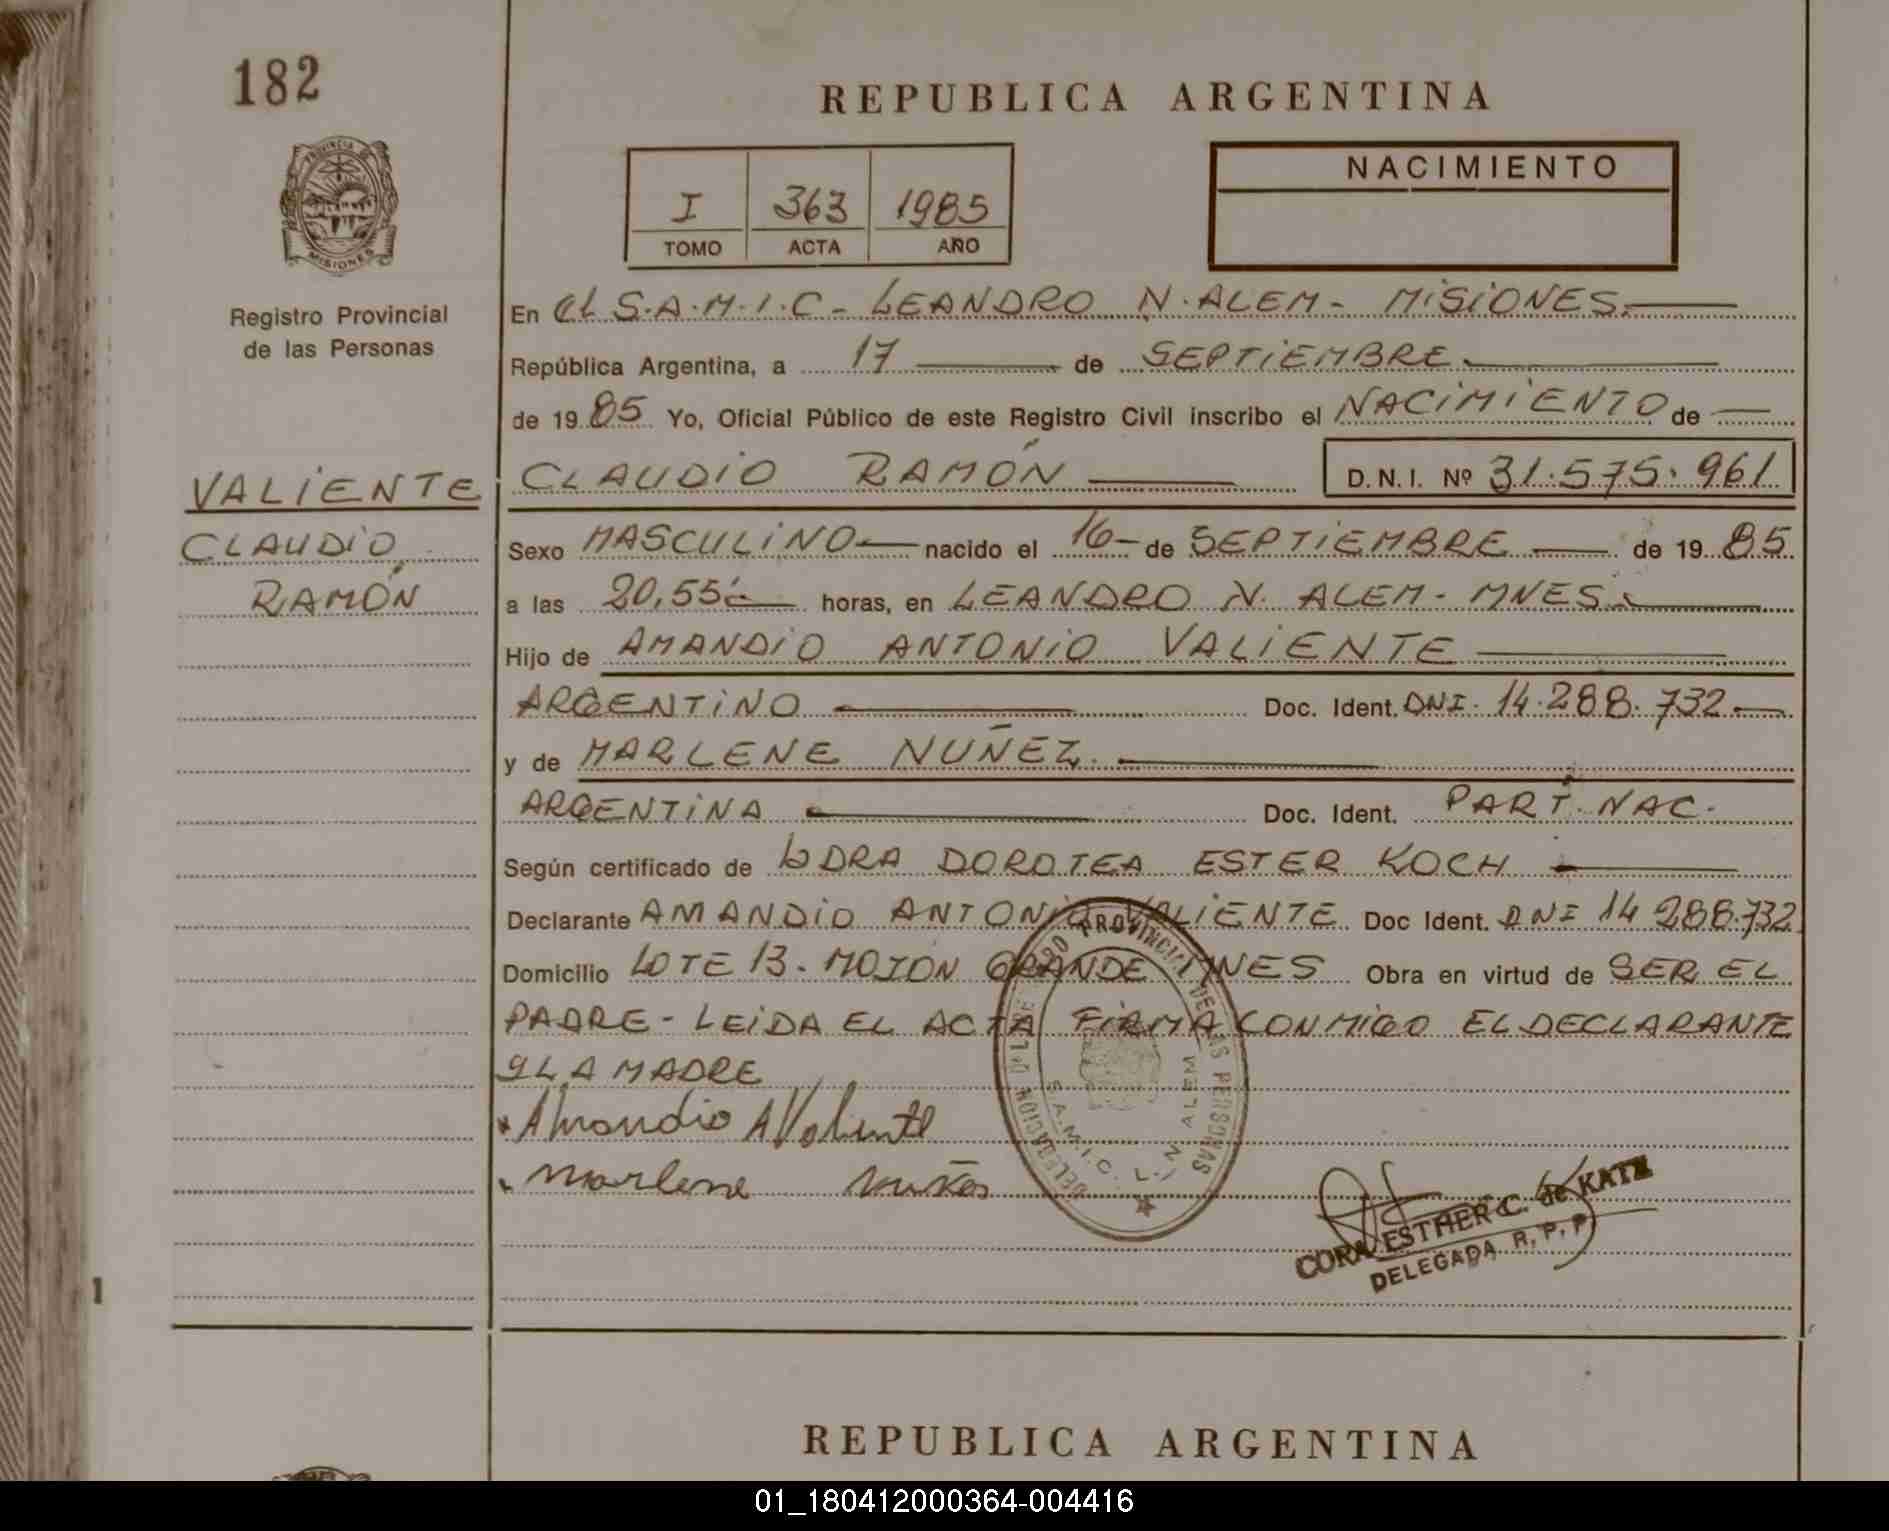 182
REPUBLICA ARGENTINA
PROVINCIA DE
MISIONES
Registro Provincial
de las Personas
I 363 1985
TOMO ACTA AÑO
NACIMIENTO
En el S.A.M.I.C - LEANDRO N. ALEM - MISIONES.
República Argentina, a 17 de SEPTIEMBRE
de 1985 Yo, Oficial Público de este Registro Civil inscribo el NACIMIENTO de
VALIENTE
CLAUDIO
RAMÓN
CLAUDIO RAMÓN D.N.I. Nº 31.575.961
Sexo MASCULINO nacido el 16 de SEPTIEMBRE de 1985
a las 20,55 horas, en LEANDRO N. ALEM - MNES.
Hijo de AMANDIO ANTONIO VALIENTE
ARGENTINO Doc. Ident. DNI. 14.288.732
y de MARLENE NUÑEZ.
ARGENTINA Doc. Ident. PART. NAC.
Según certificado de LA DRA DOROTEA ESTER KOCH
Declarante AMANDIO ANTONIO VALIENTE Doc Ident. DNI 14 288.732
Domicilio LOTE 13 - MOJON GRANDE MNES Obra en virtud de SER EL
PADRE - LEIDA EL ACTA FIRMA CONMIGO EL DECLARANTE
Y LA MADRE
Amandio A Valiente
Marlene Nuñes
DELEGACION DEL REGISTRO PROVINCIAL DE LAS PERSONAS
S.A.M.I.C. L. N. ALEM
CORA ESTHER C. de KATZ
DELEGADA R.P.P.
1
REPUBLICA ARGENTINA
01_180412000364-004416